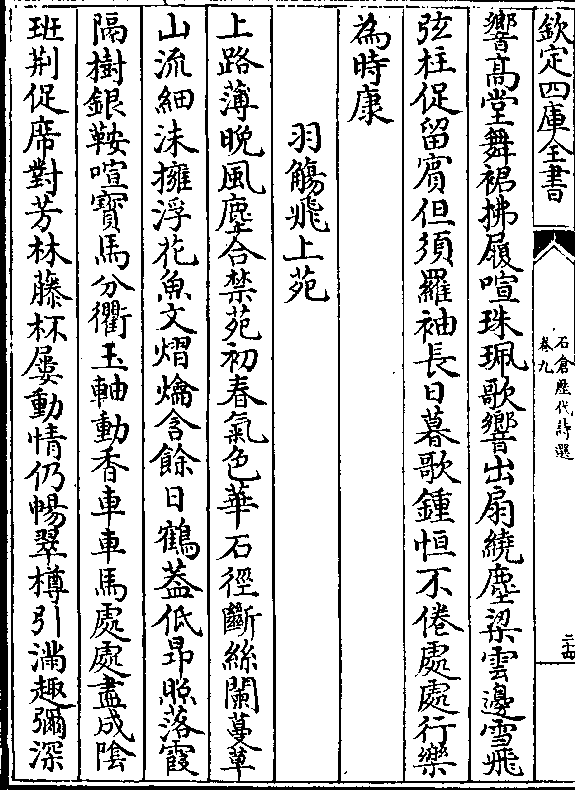 欽定四庫全書
石倉歷代詩選
卷九
二十四
響高堂舞裙拂履喧珠珮歌響出扇繞塵梁雲邊雪飛
弦柱促留賔但須羅袖長日暮歌鍾恒不倦處處行樂
為時康
羽觴飛上苑
上路薄晚風塵合禁苑初春氣色華石徑斷絲闌蔓草
山流細沫擁浮花魚文熠爚含餘日鶴葢低昻照落霞
隔樹銀鞍喧寶馬分衢玉軸動香車車馬處處盡成陰
班荆促席對芳林藤杯屢動情仍暢翠樽引滿趣彌深